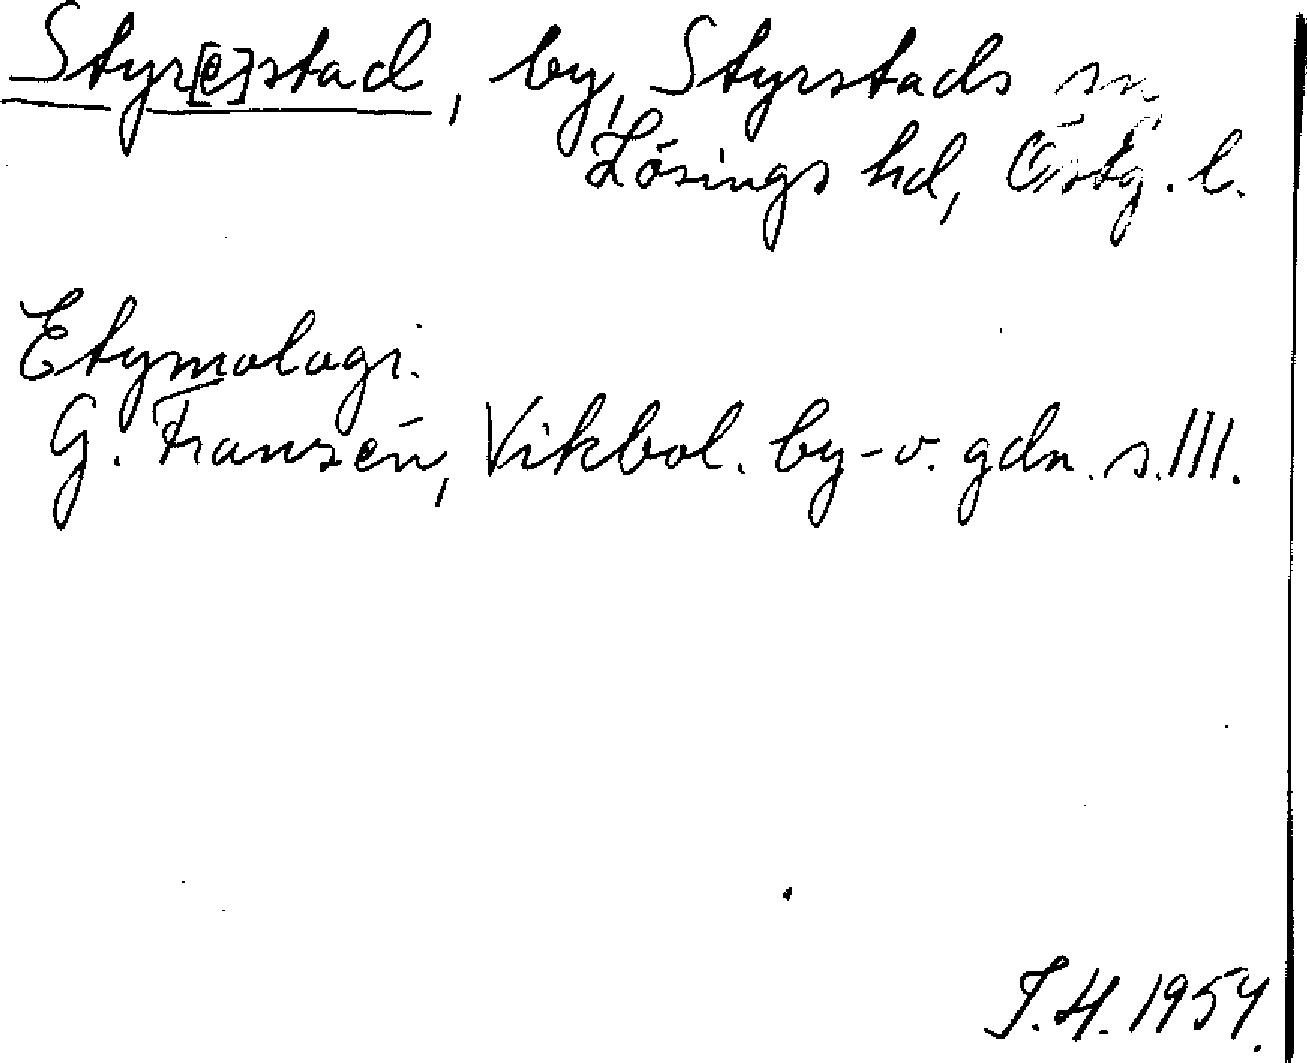 Styr[e]stad, by, Styrstads sn,
Lösings hd, Östg. l.
Etymologi.
G. Franzén, Vikbol. by- o. gdn. s. 111.
I.H. 1954.